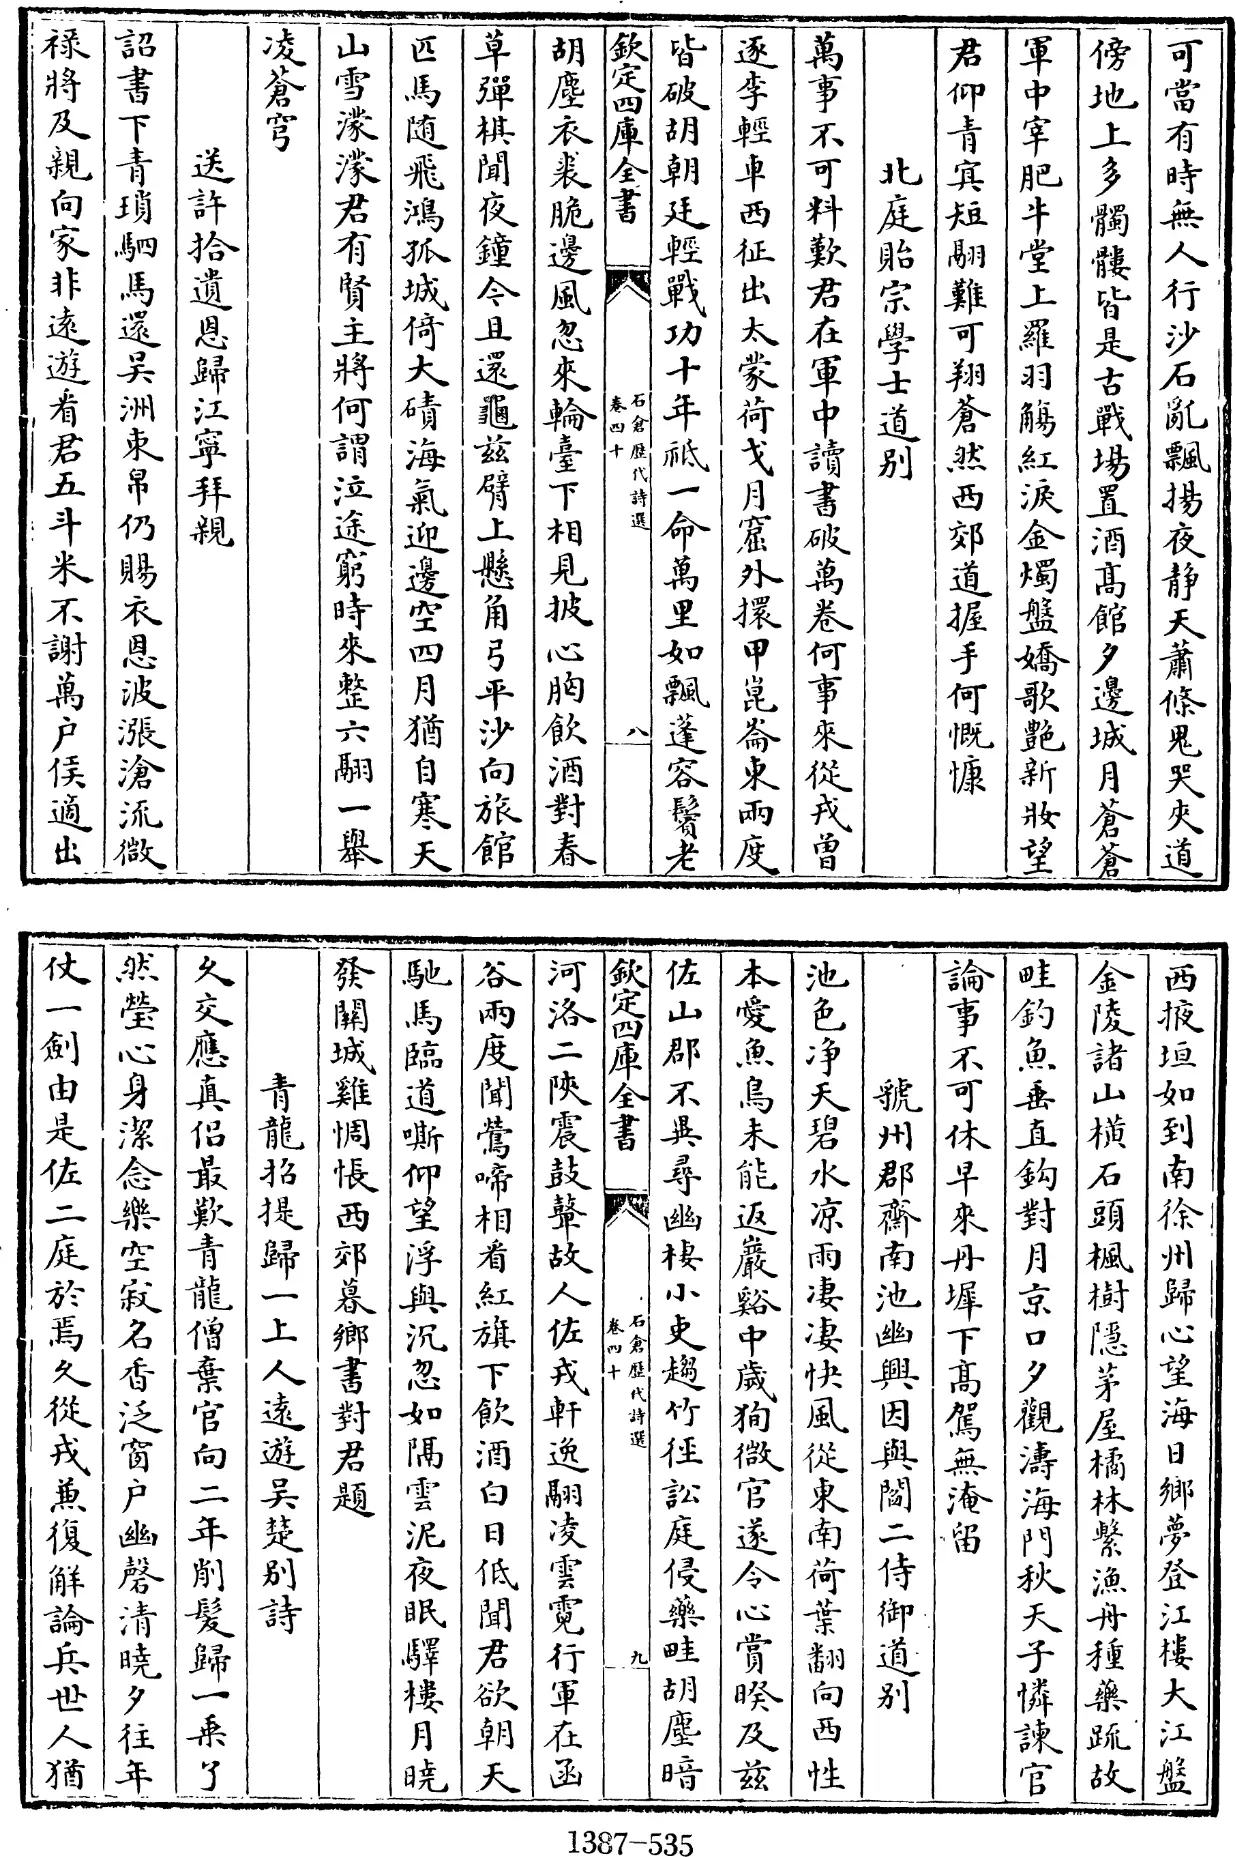 可當有時無人行沙石亂飄揚夜静天蕭條鬼哭夾道
傍地上多髑髏皆是古戰場置酒高館夕邊城月蒼蒼
軍中宰肥牛堂上羅羽觴紅淚金燭盤嬌歌艷新妝望
君仰青㝠短翮難可翔蒼然西郊道握手何慨慷
北庭貽宗學士道别
萬事不可料歎君在軍中讀書破萬卷何事來從戎曾
逐李輕車西征出太蒙荷戈月窟外擐甲崑崙東兩度
皆破胡朝廷輕戰功十年祗一命萬里如飄蓬容鬢老
欽定四庫全書
石倉歷代詩選
卷四十
八
胡塵衣裘脆邊風忽來輪臺下相見披心胸飲酒對春
草彈棋聞夜鐘今且還龜兹臂上懸角弓平沙向旅館
匹馬随飛鴻孤城倚大磧海氣迎邊空四月猶自寒天
山雪濛濛君有賢主將何謂泣途窮時來整六翮一舉
凌蒼穹
送許拾遺恩歸江寧拜親
詔書下青瑣駟馬還吴洲束帛仍賜衣恩波漲滄流微
禄將及親向家非遠遊看君五斗米不謝萬户侯適出
西掖垣如到南徐州歸心望海日鄉夢登江樓大江盤
金陵諸山橫石頭楓樹隱茅屋橘林繫漁舟種藥疏故
畦釣魚垂直鈎對月京口夕觀濤海門秋天子憐諫官
論事不可休早來丹墀下高駕無淹留
虢州郡齋南池幽興因與閻二侍御道别
池色净天碧水凉雨凄凄快風從東南荷葉翻向西性
本愛魚鳥未能返巖谿中歲狥微官遂令心賞暌及兹
佐山郡不異尋幽棲小吏趨竹徑訟庭侵藥畦胡塵暗
欽定四庫全書
石倉歷代詩選
卷四十
九
河洛二陜震鼓鼙故人佐戎軒逸翮凌雲霓行軍在函
谷兩度聞鶯啼相看紅旗下飲酒白日低聞君欲朝天
馳馬臨道嘶仰望浮與沉忽如隔雲泥夜眠驛樓月曉
發關城雞惆悵西郊暮鄉書對君題
青龍招提歸一上人遠遊吴楚别詩
久交應真侣最歎青龍僧棄官向二年削髮歸一乘了
然瑩心身潔念樂空寂名香泛窗户幽磬清曉夕往年
仗一劍由是佐二庭於焉久從戎兼復解論兵世人猶
1387-535